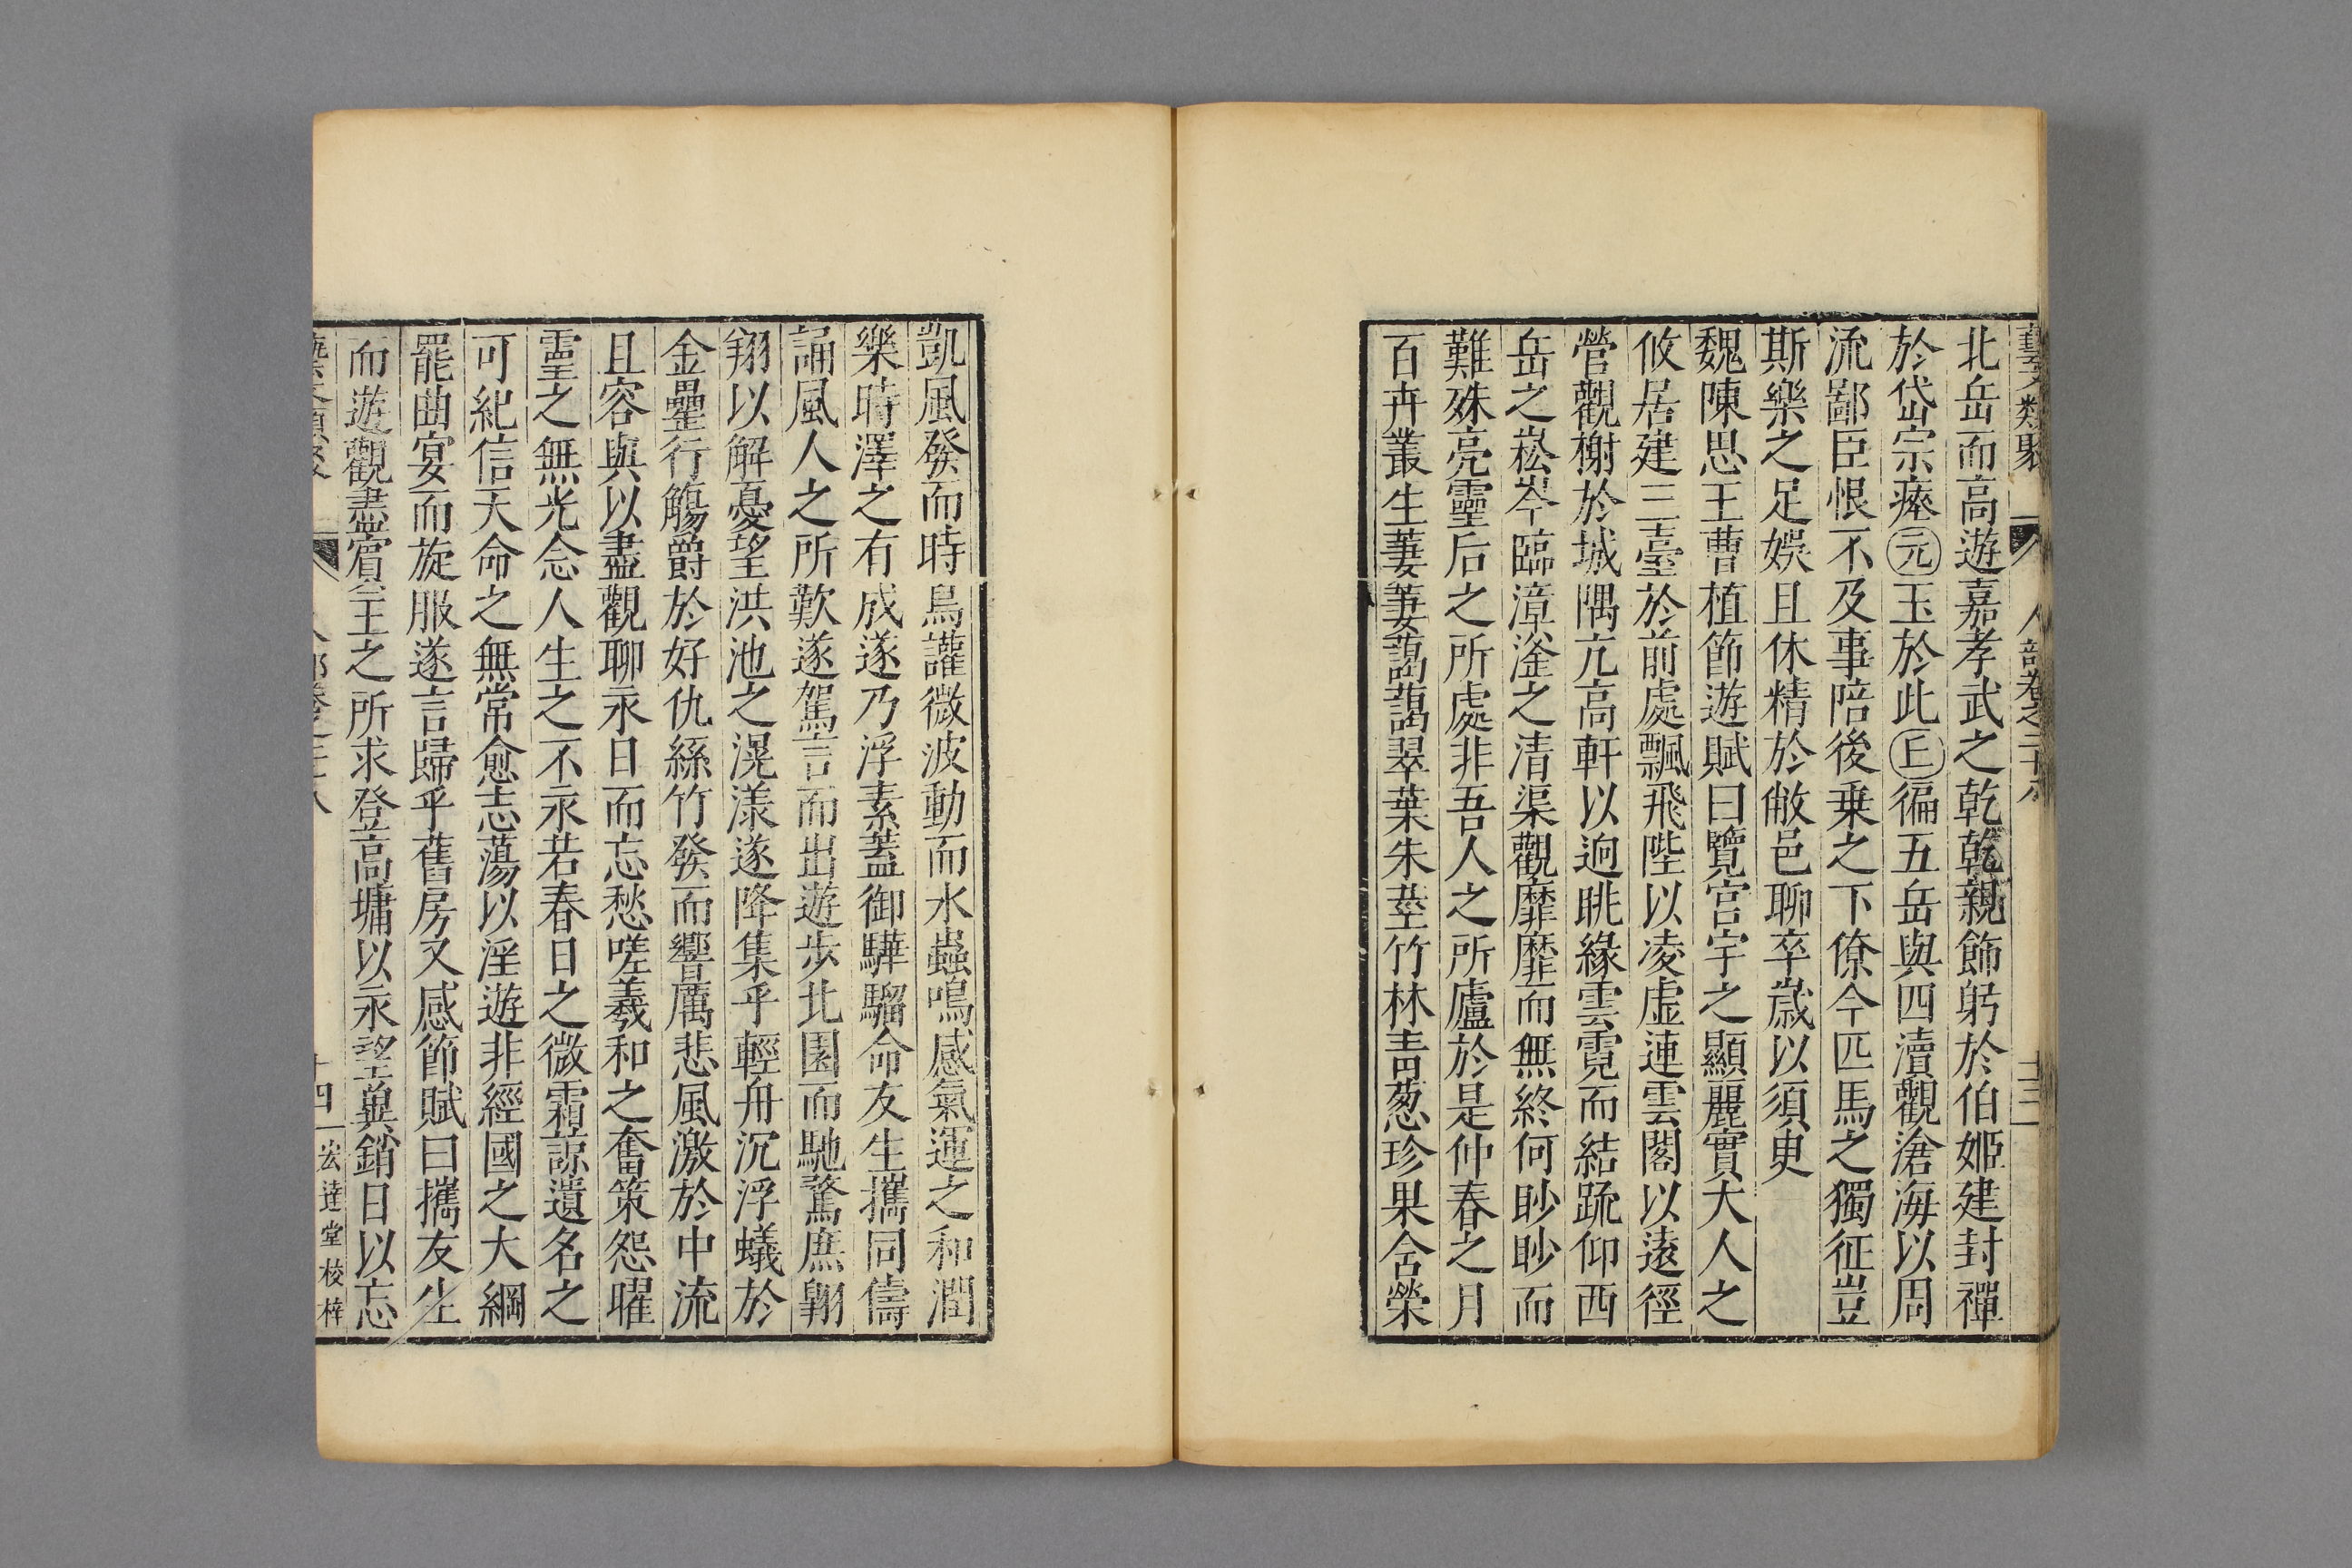 藝文類聚 人部卷之二十八 十三
北岳而高遊嘉孝武之乾乾親飾躬於伯姬建封禪
於岱宗瘞元玉於此丘徧五岳與四瀆觀滄海以周
流鄙臣恨不及事陪後乗之下僚今匹馬之獨征豈
斯樂之足娛且休精於敝邑聊卒歲以須臾
魏陳思王曹植節遊賦曰覽宮宇之顯麗實大人之
攸居建三臺於前處飄飛陛以凌虛連雲閣以遠徑
營觀榭於城隅亢高軒以迥眺緣雲霓而結䟽仰西
岳之崧岑臨漳滏之清渠觀靡靡而無終何眇眇而
難殊亮靈后之所處非吾人之所廬於是仲春之月
百卉叢生萋萋藹藹翠葉朱莖竹林青葱珍果含榮
凱風發而時鳥讙微波動而水蟲鳴感氣運之和潤
樂時澤之有成遂乃浮素蓋御驊騮命友生攜同儔
誦風人之所歎遂駕言而出遊步北園而馳騖庶翺
翔以解憂望洪池之滉漾遂降集乎輕舟沉浮蟻於
金罍行觴爵於好仇絲竹發而響厲悲風激於中流
且容與以盡觀聊永日而忘愁嗟羲和之奮策怨曜
靈之無光念人生之不永若春日之微霜諒遺名之
可紀信天命之無常愈志蕩以淫遊非經國之大綱
罷曲宴而旋服遂言歸乎舊房又感節賦曰攜友生
而遊觀盡賓主之所求登高墉以永望冀銷日以忘
藝文類聚 人部卷之二十八 十四 宏逹堂校梓